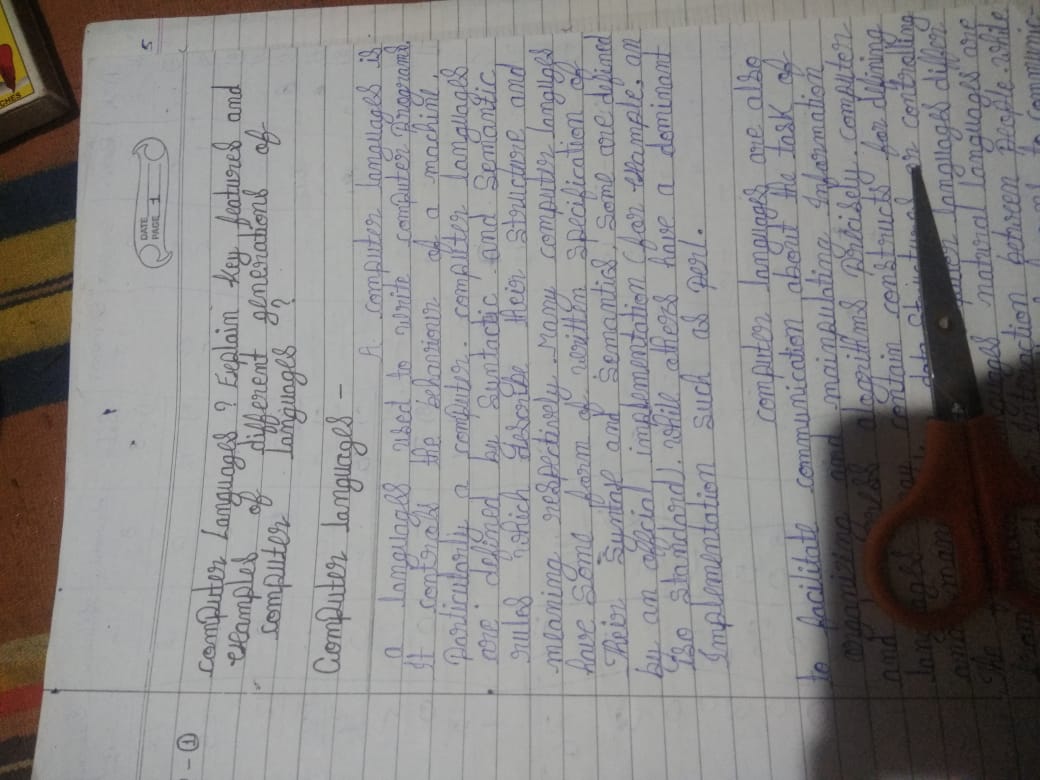 CHES
5
DATE
PAGE 1
- ①
computer Languages ? Explain key features and
examples of different generations of
computer languages ?
Computer languages -
A computer languages is
a languages used to write computer programs,
It controls the behaviour of a machine,
Particularly a computer. computer languages
are defined by syntactic and semantic
rules which describe their structure and
meaning respectively. Many computer languges
have some form of written specification of
Their syntax and semantics, some are defined
by an official implementation (for example, an
ISO standard. while others have a dominant
Implementation such as perl.
computer languages are also
to facilitate communication about the task of
organizing and mainpulating Information
and algorithms precisely. computer
contain constructs for defining
data structures or controlling
languages differ
The natural languages are
interaction between People while
to